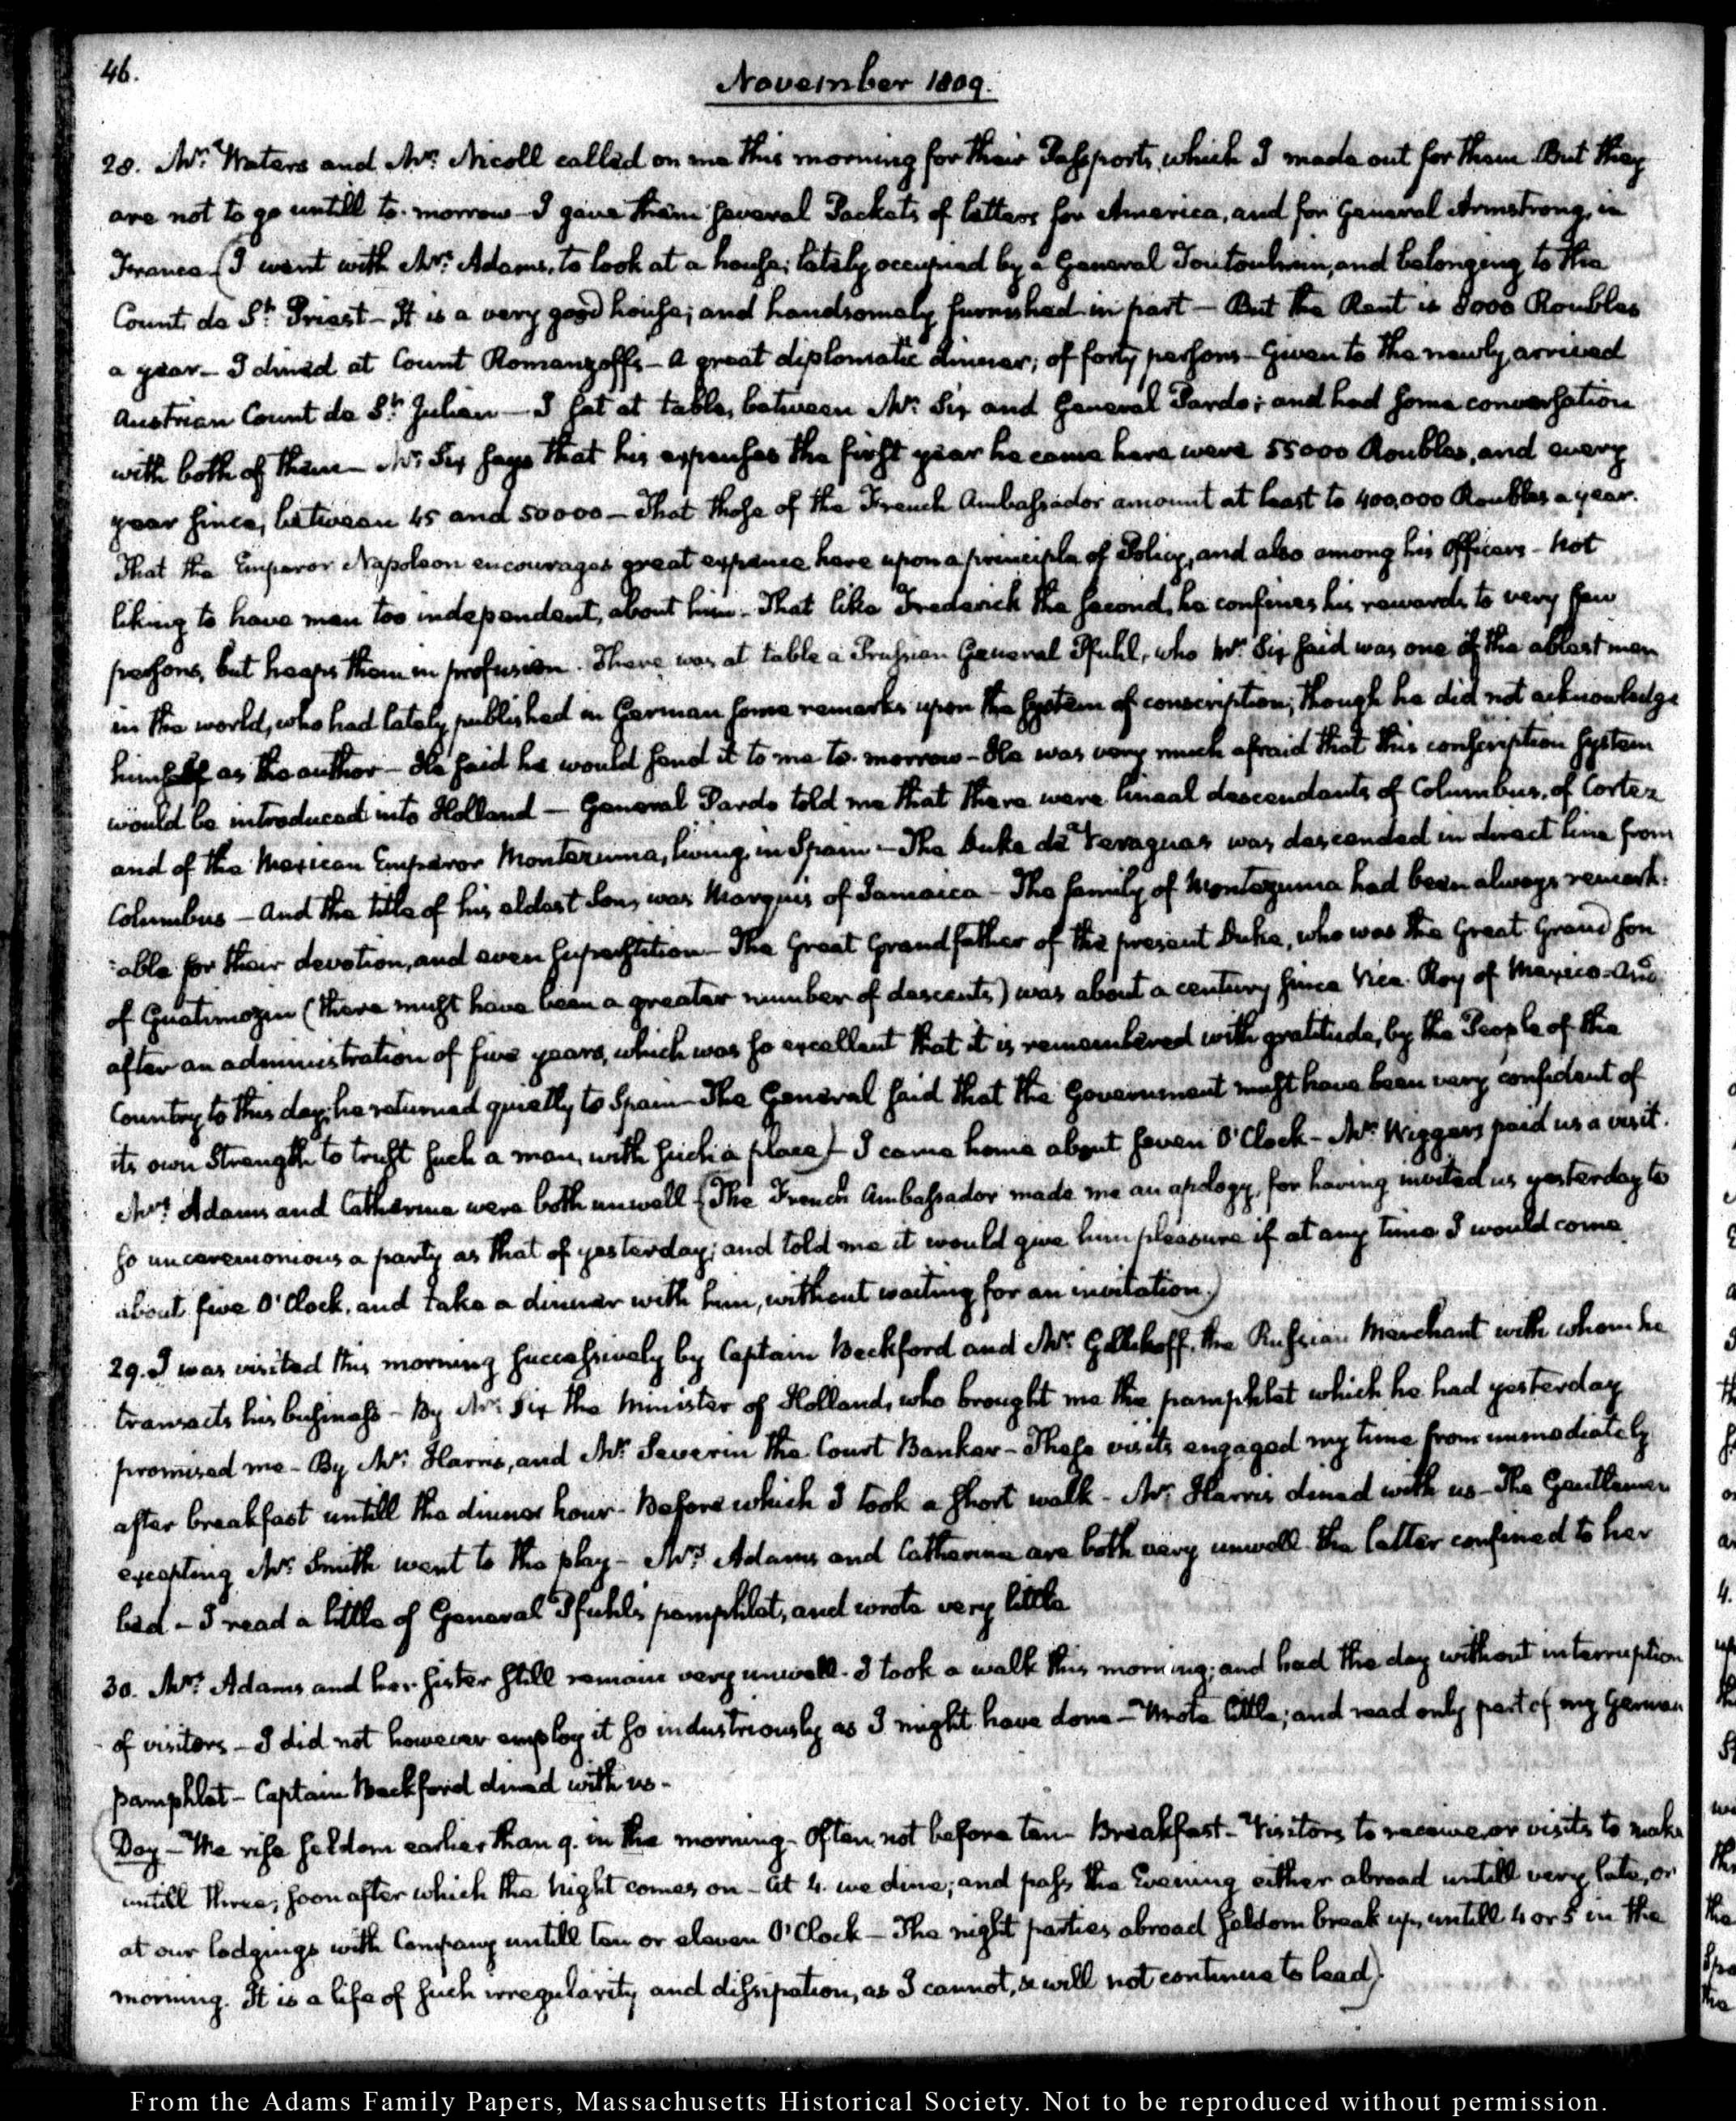 46.
November 1809.
28. Mr. Waters and Mr. Nicoll called on me this morning for their Passports, which I made out for them. But they
are not to go untill to-morrow — I gave them several Packets of letters for America, and for General Armstrong, in
France. (I went with Mrs. Adams, to look at a house; lately occupied by a General and belonging to the
Count de St. Priest — It is a very good house; and handsomely furnished in part — But the Rent is 8000 Roubles
a year — I dined at Count Romanzoff's — A great diplomatic dinner; of forty persons — Given to the newly arrived
Austrian Count de St. Julien — I sat at table, between Mr. Six and General Pardo; and had some conversation
with both of them — Mr. Six says that his expenses the first year he came here were 55000 Roubles, and every
year since, between 45 and 50000 — That those of the French Ambassador amount at least to 400,000 Roubles a year.
That the Emperor Napoleon encourages great expence here upon a principle of Policy, and also among his Officers — Not
liking to have men too independent, about him — That like Frederick the second, he confines his rewards to very few
persons, but heaps them in profusion. There was at table a Prussian General Pfuhl, who Mr. Six said was one of the ablest men
in the world, who had lately published in German some remarks upon the system of conscription; though he did not acknowledge
himself as the author — He said he would send it to me to-morrow — He was very much afraid that this conscription system
would be introduced into Holland — General Pardo told me that there were lineal descendants of Columbus, of Cortez
and of the Mexican Emperor Montezuma, living in Spain — The Duke de Veraguas was descended in direct line from
Columbus — And the title of his eldest Son, was Marquis of Jamaica — The family of Montezuma had been always remark-
-able for their devotion, and even superstition — The Great Grandfather of the present Duke, who was the Great Grand son
of Guatimozin (there must have been a greater number of descents) was about a century since Vice-Roy of Mexico — And
after an administration of five years, which was so excellent that it is remembered with gratitude, by the People of the
Country to this day, he returned quietly to Spain — The General said that the Government must have been very confident of
its own Strength to trust such a man, with such a place) — I came home about seven O'Clock — Mr. Wiggers paid us a visit.
Mrs. Adams and Catherine were both unwell (The French Ambassador made me an apology, for having invited us yesterday to
so unceremonious a party as that of yesterday; and told me it would give him pleasure if at any time I would come
about five O'Clock, and take a dinner with him, without waiting for an invitation.)
29. I was visited this morning successively by Captain Beckford and Mr. the Russian Merchant with whom he
transacts his business — By Mr. Six the Minister of Holland, who brought me the pamphlet which he had yesterday
promised me — By Mr. Harris, and Mr. Severin the Court Banker — These visits engaged my time from immediately
after breakfast untill the dinner hour — Before which I took a short walk — Mr. Harris dined with us — The Gentlemen
excepting Mr. Smith went to the play — Mrs. Adams and Catherine are both very unwell — the latter confined to her
bed — I read a little of General Pfuhl's pamphlet, and wrote very little
30. Mrs. Adams and her sister still remain very unwell — I took a walk this morning; and had the day without interruption
of visitors — I did not however employ it so industriously as I might have done — Wrote little; and read only part of my German
pamphlet — Captain Beckford dined with us —
(Day — We rise seldom earlier than 9. in the morning — Often, not before ten — Breakfast — Visitors to receive, or visits to make
untill three; soon after which the night comes on — At 4. we dine; and pass the Evening either abroad untill very late, or
at our lodgings with Company untill ten or eleven O'Clock — The night parties abroad seldom break up, untill 4 or 5 in the
morning. It is a life of such irregularity and dissipation, as I cannot, & will not continue to lead).
From the Adams Family Papers, Massachusetts Historical Society. Not to be reproduced without permission.